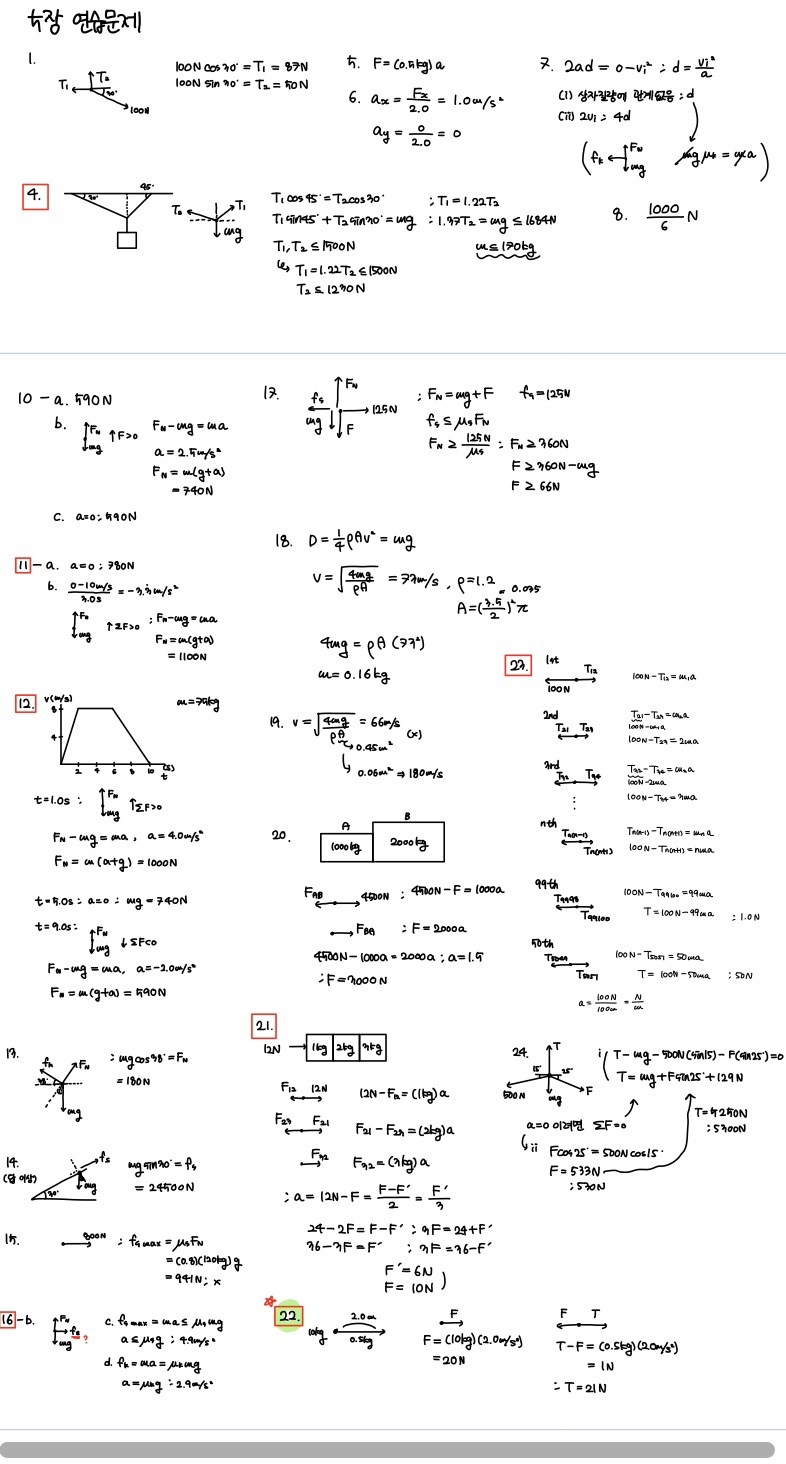 5장 연습문제
1.
T₁ T₂ 30° 100N
100N cos 30° = T₁ = 87N
100N sin 30° = T₂ = 50N
4.
30° 45°
T₂ T₁ mg
T₁cos45° = T₂cos30° ; T₁ = 1.22T₂
T₁sin45° + T₂sin30° = mg ; 1.37T₂ = mg ≤ 1684N
T₁, T₂ ≤ 1500N m ≤ 170kg
↳ T₁ = 1.22T₂ ≤ 1500N
T₂ ≤ 1230N
5. F = (0.5kg) a
6. ax = Fx/2.0 = 1.0m/s²
ay = 0/2.0 = 0
7. 2ad = 0-vi² ; d = vi²/a
(i) 상자질량에 관계없음 ; d
(ii) 2vi ; 4d
( fk FN mg mg μk = ma )
8. 1000/6 N
10 - a. 590N
b. FN mg ↑F>0 FN-mg = ma
a = 2.5m/s²
FN = m(g+a)
= 740N
c. a=0 ; 590N
11 - a. a=0 ; 780N
b. 0-10m/s / 3.0s = -3.3m/s²
FN mg ↑ΣF>0 ; FN-mg = ma
FN = m(g+a)
= 1100N
12. v(m/s) m=75kg
8
4
2 4 6 8 10 (s)
t
t=1.0s ; FN mg ↑ΣF>0
FN - mg = ma , a = 4.0m/s²
FN = m (a+g) = 1000N
t=5.0s ; a=0 ; mg = 740N
t=9.0s ; FN mg ↓ΣF<0
FN - mg = ma, a = -2.0m/s²
FN = m(g+a) = 590N
13. fk FN 38° mg
; mg cos38° = FN
= 180N
14. (답 이상)
fs mg 30°
mg sin30° = fs
= 24500N
15. 800N ; fs max = μsFN
= (0.8)(120kg) g
= 941N ; x
16 -b. FN fk ? mg
c. fs max = ma ≤ μs mg
a ≤ μs g ; 4.9m/s²
d. fk = ma = μk mg
a = μk g ; 2.9m/s²
17. FN fs 125N mg F
; FN = mg + F fs = 125N
fs ≤ μs FN
FN ≥ 125N/μs ; FN ≥ 360N
F ≥ 360N - mg
F ≥ 66N
18. D = 1/4 ρAv² = mg
v = √(4mg/ρA) = 73m/s , ρ = 1.2
A = (3.5/2)² π = 0.035
4mg = ρA (73²)
m = 0.16kg
19. v = √(4mg/ρA) = 66m/s (x)
↘ 0.45m²
↳ 0.06m² ⇒ 180m/s
20. A B
1000kg 2000kg
FAB 4500N ; 4500N - F = 1000a
FBA ; F = 2000a
4500N - 1000a = 2000a ; a = 1.5
; F = 3000N
21.
12N → 1kg 2kg 3kg
F12 12N 12N - F12 = (1kg) a
F23 F21 F21 - F23 = (2kg) a
F32 F32 = (3kg) a
; a = 12N - F = F-F'/2 = F'/3
24 - 2F = F - F' ; 3F = 24 + F'
36 - 3F = F' ; 3F = 36 - F'
F' = 6N
F = 10N )
22. 10kg 2.0m 0.5kg
F
F = (10kg)(2.0m/s²)
= 20N
F T
T - F = (0.5kg)(2.0m/s²)
= 1N
∴ T = 21N
23. 1st T12 100N
100N - T12 = m₁a
2nd T21 T23
T21 - T23 = m₂a
100N - m₁a
100N - T23 = 2ma
3rd T32 T34
T32 - T34 = m₃a
100N - 2ma
100N - T34 = 3ma
⋮
nth Tn(n-1) Tn(n+1)
Tn(n-1) - Tn(n+1) = mn a
100N - Tn(n+1) = nma
99th T9998 T99100
100N - T99100 = 99ma
T = 100N - 99ma ; 1.0N
50th T5049 T5051
100N - T5051 = 50ma
T = 100N - 50ma ; 50N
a = 100N/100m = N/m
24. T 15° 25° 500N mg F
i ( T - mg - 500N(sin15) - F(sin25°) = 0
T = mg + Fsin25° + 129N
a=0 이려면 ΣF=0
T = 5250N
; 5300N
↳ ii Fcos25° = 500N cos15°
F = 533N
; 530N